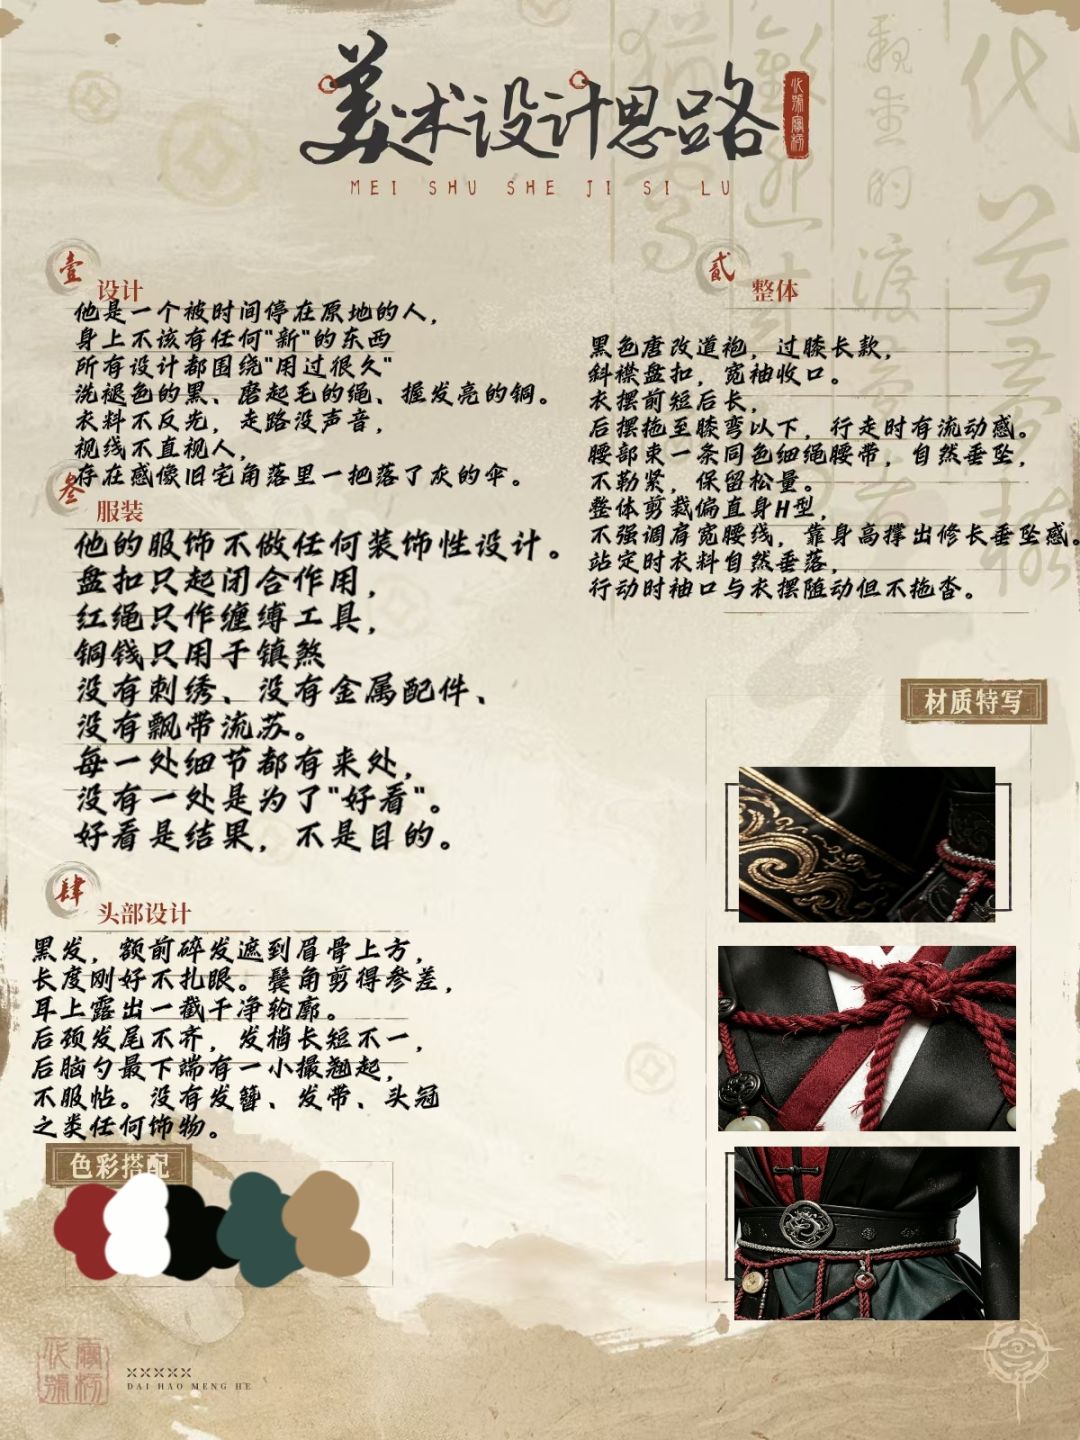 美术设计思路
MEI SHU SHE JI SI LU
壹
设计
他是一个被时间停在原地的人，
身上不该有任何"新"的东西
所有设计都围绕"用过很久"
洗褪色的黑、磨起毛的绳、握发亮的铜。
衣料不反光，走路没声音，
视线不直视人，
存在感像旧宅角落里一把落了灰的伞。
贰
整体
黑色唐改道袍，过膝长款，
斜襟盘扣，宽袖收口。
衣摆前短后长，
后摆拖至膝弯以下，行走时有流动感。
腰部束一条同色细绳腰带，自然垂坠，
不勒紧，保留松量。
整体剪裁偏直身H型，
不强调肩宽腰线，靠身高撑出修长垂坠感。
站定时衣料自然垂落，
行动时袖口与衣摆随动但不拖沓。
叁
服装
他的服饰不做任何装饰性设计。
盘扣只起闭合作用，
红绳只作缠缚工具，
铜钱只用于镇煞
没有刺绣、没有金属配件、
没有飘带流苏。
每一处细节都有来处，
没有一处是为了"好看"。
好看是结果，不是目的。
肆
头部设计
黑发，额前碎发遮到眉骨上方，
长度刚好不扎眼。鬓角剪得参差，
耳上露出一截干净轮廓。
后颈发尾不齐，发梢长短不一，
后脑勺最下端有一小撮翘起，
不服帖。没有发簪、发带、头冠
之类任何饰物。
色彩搭配
材质特写
DAI HAO MENG HE